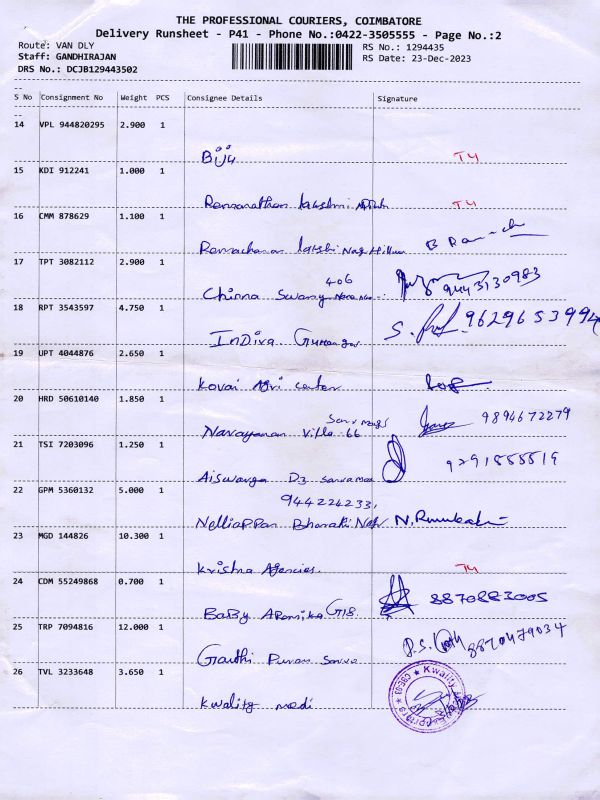 THE PROFESSIONAL COURIERS, COIMBATORE
Delivery Runsheet - P41 - Phone No.:0422-3505555 - Page No.:2
Route: VAN DLY
RS No.: 1294435
Staff: GANDHIRAJAN
RS Date: 23-Dec-2023
DRS No.: DCJB129443502
S No Consignment No Weight PCS Consignee Details Signature
14 VPL 944820295 2.900 1
Biju T4
15 KDI 912241 1.000 1
Ramanathan lakshmi T4
16 CMM 878629 1.100 1
Ramachanan B
17 TPT 3082112 2.900 1
406
Chinna Swamy 9443130983
18 RPT 3543597 4.750 1
Indira S. 9629653994
19 UPT 4044876 2.650 1
Kovai Agri center
20 HRD 50610140 1.850 1
Narayanan Villa 66 9894672279
21 TSI 7203096 1.250 1
Aiswarya D3
22 GPM 5360132 5.000 1
944224233,
Nelliappan Bharathi Nagr N.
23 MGD 144826 10.300 1
Krishna Agencies. T4
24 CDM 55249868 0.700 1
Baby G18. 8870883005
25 TRP 7094816 12.000 1
P.S. 8870479034
26 TVL 3233648 3.650 1
Kwality medi
Kwality
CBE-03